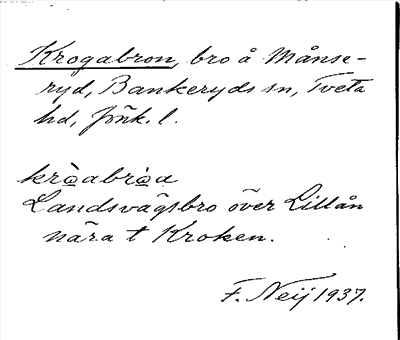 Krogabron, bro å Månse-
ryd, Bankeryds sn, Tveta
hd, Jönk. l.
kròabròa
Landsvägsbro över Lillån
nära t Kroken.
F. Neij 1937.